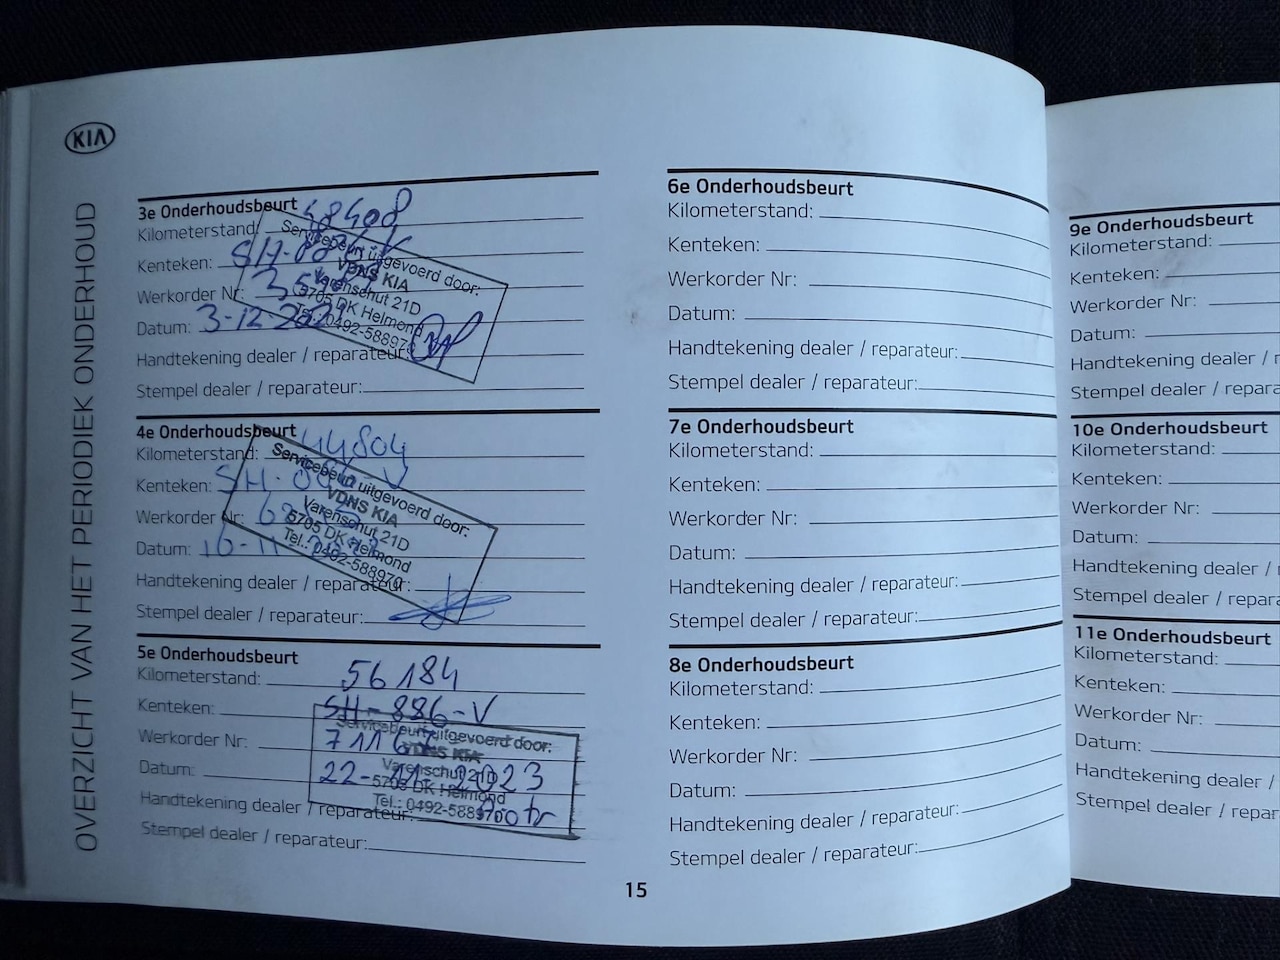 KIA
OVERZICHT VAN HET PERIODIEK ONDERHOUD
3e Onderhoudsbeurt
Kilometerstand: 38408
Kenteken: SH-886-V
Werkorder Nr:
Datum: 3-12-2021
Handtekening dealer / reparateur:
Stempel dealer / reparateur:
Servicebeurt uitgevoerd door:
VDNS KIA
Varenschut 21D
5705 DK Helmond
Tel.: 0492-588970
4e Onderhoudsbeurt
Kilometerstand: 44804
Kenteken: SH-886-V
Werkorder Nr:
Datum: 16-11-
Handtekening dealer / reparateur:
Stempel dealer / reparateur:
Servicebeurt uitgevoerd door:
VDNS KIA
Varenschut 21D
5705 DK Helmond
Tel.: 0492-588970
5e Onderhoudsbeurt
Kilometerstand: 56184
Kenteken: SH-886-V
Werkorder Nr:
Datum: 22-11-2023
Handtekening dealer / reparateur:
Stempel dealer / reparateur:
Servicebeurt uitgevoerd door:
VDNS KIA
Varenschut 21D
5705 DK Helmond
Tel.: 0492-588970
6e Onderhoudsbeurt
Kilometerstand:
Kenteken:
Werkorder Nr:
Datum:
Handtekening dealer / reparateur:
Stempel dealer / reparateur:
7e Onderhoudsbeurt
Kilometerstand:
Kenteken:
Werkorder Nr:
Datum:
Handtekening dealer / reparateur:
Stempel dealer / reparateur:
8e Onderhoudsbeurt
Kilometerstand:
Kenteken:
Werkorder Nr:
Datum:
Handtekening dealer / reparateur:
Stempel dealer / reparateur:
15
9e Onderhoudsbeurt
Kilometerstand:
Kenteken:
Werkorder Nr:
Datum:
Handtekening dealer / r
Stempel dealer / repara
10e Onderhoudsbeurt
Kilometerstand:
Kenteken:
Werkorder Nr:
Datum:
Handtekening dealer /
Stempel dealer / repara
11e Onderhoudsbeurt
Kilometerstand:
Kenteken:
Werkorder Nr:
Datum:
Handtekening dealer /
Stempel dealer / repar